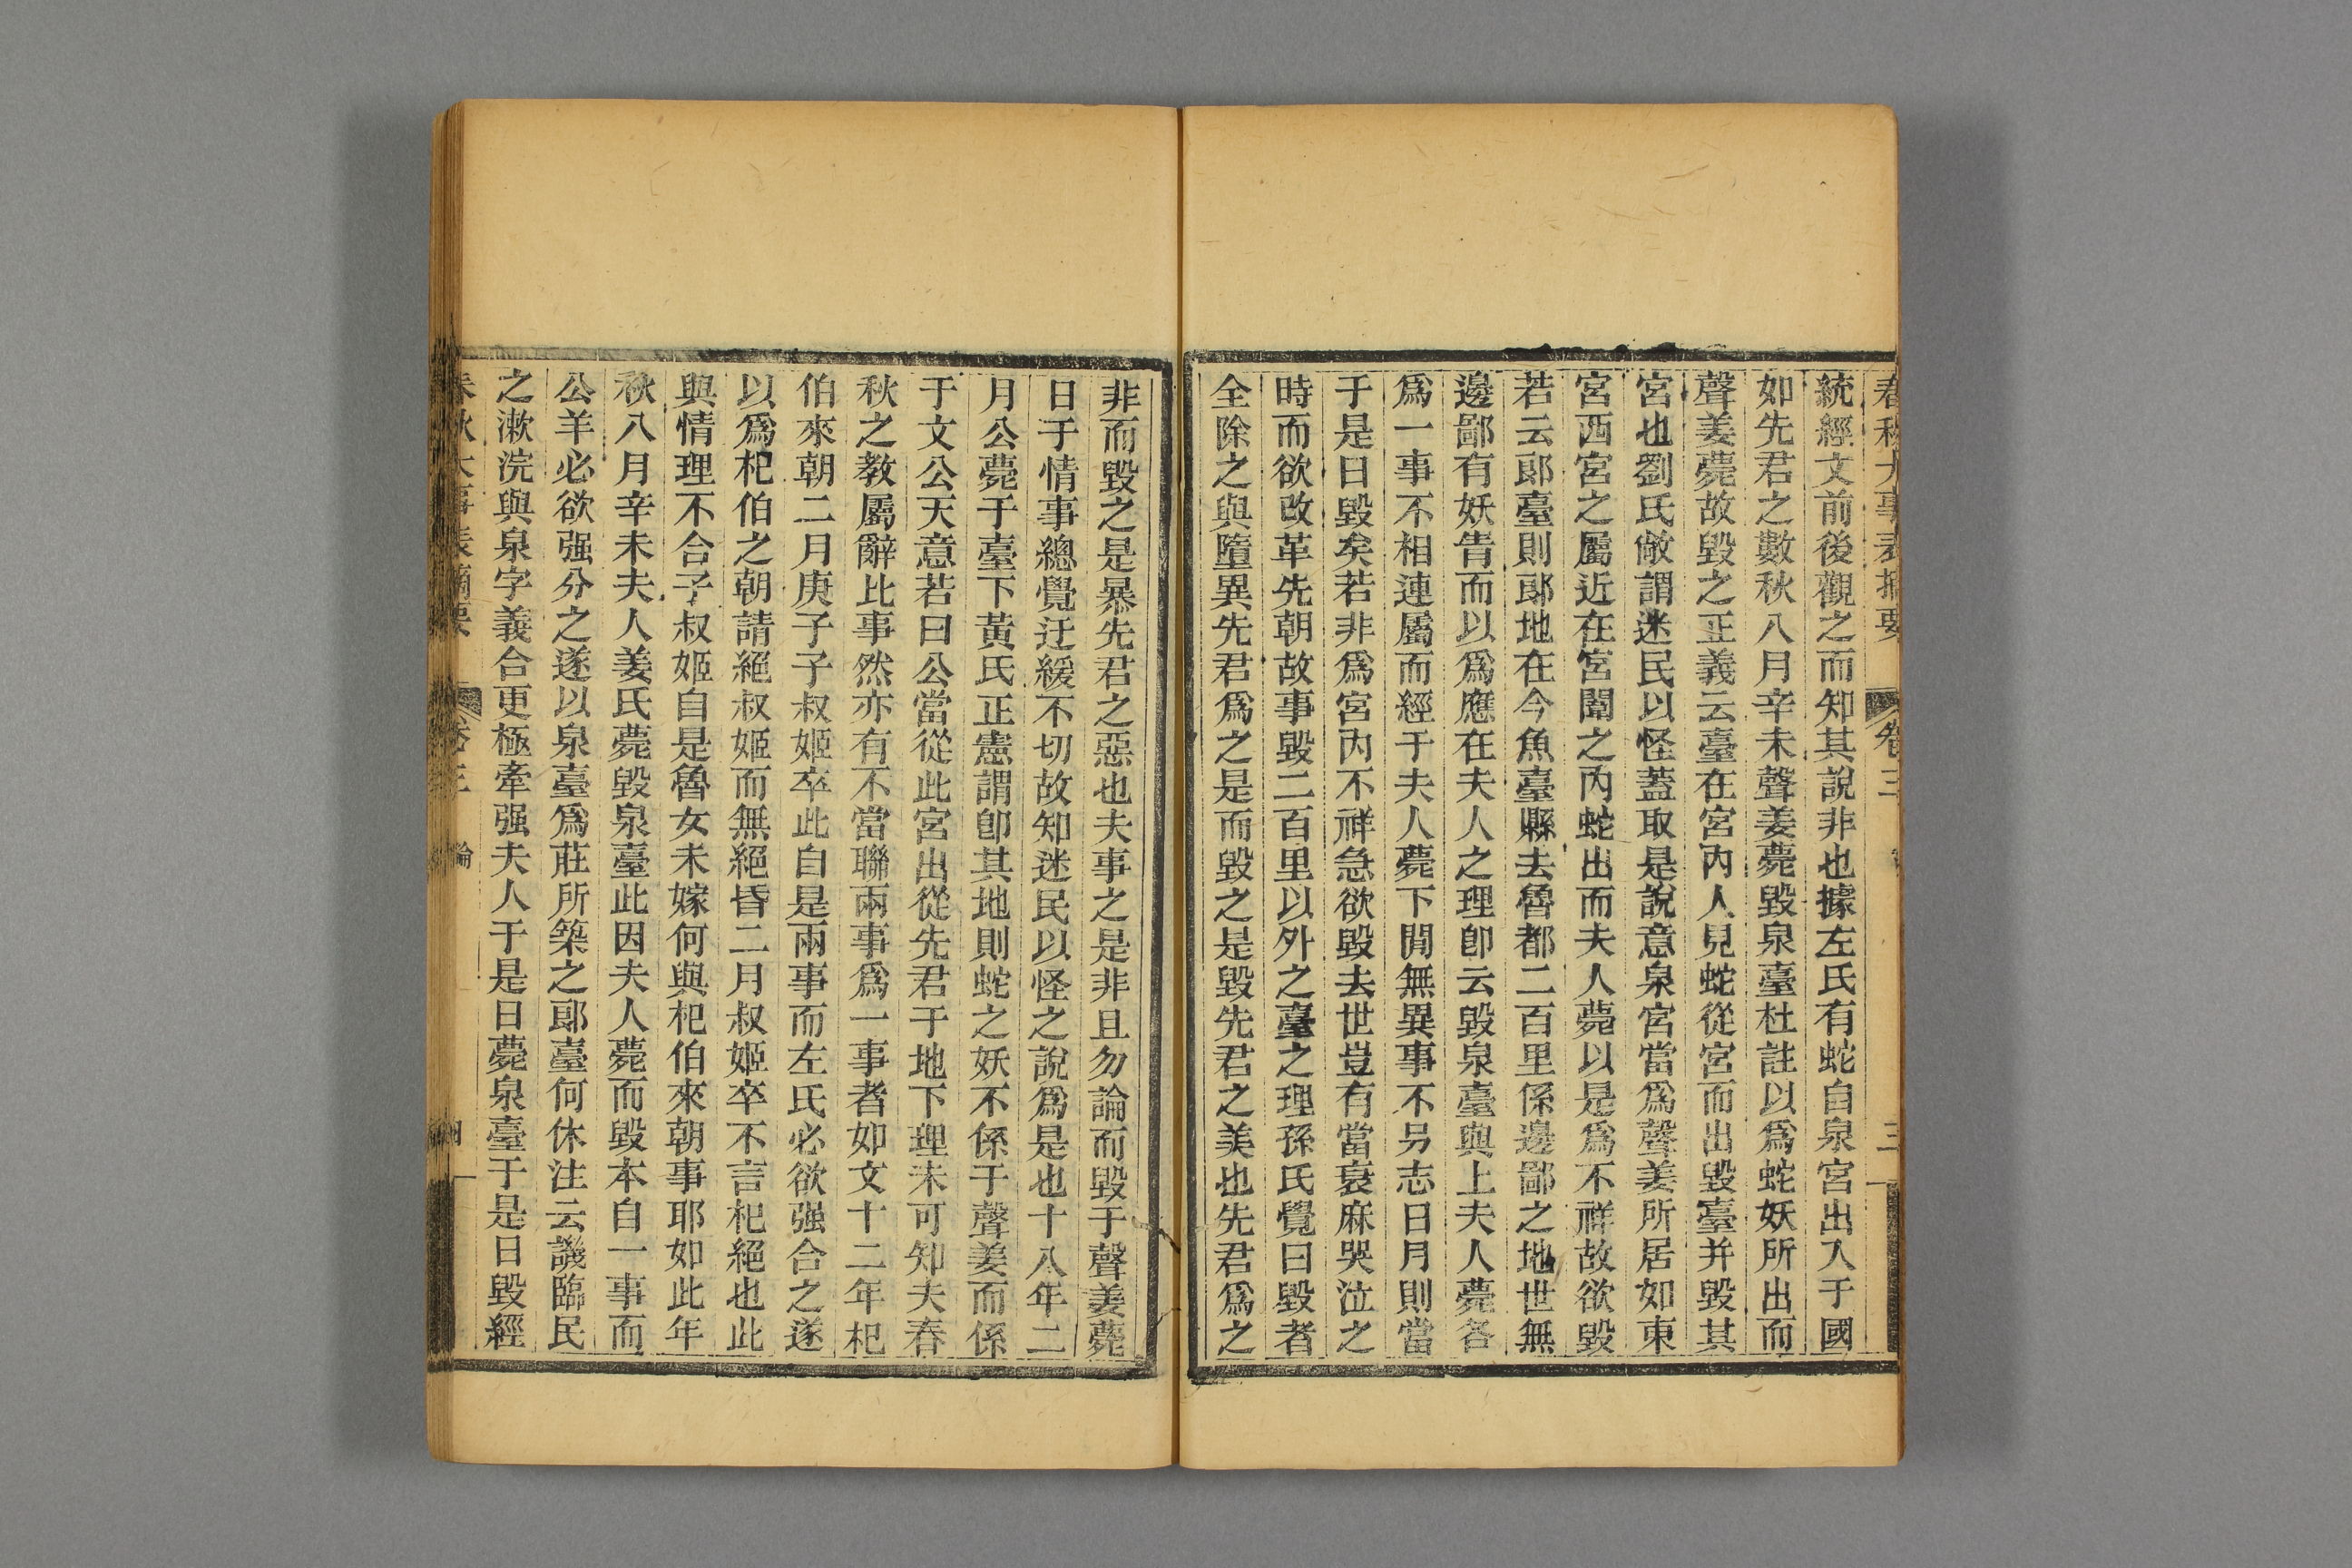 春秋大事表摘要 卷三 三
統經文前後觀之而知其說非也據左氏有蛇自泉宮出入于國
如先君之數秋八月辛未聲姜薨毀泉臺杜註以爲蛇妖所出而
聲姜薨故毀之正義云臺在宮內人見蛇從宮而出毀臺并毀其
宮也劉氏敞謂迷民以怪蓋取是說意泉宮當爲聲姜所居如東
宮西宮之屬近在宮闈之內蛇出而夫人薨以是爲不祥故欲毀
若云郞臺則郞地在今魚臺縣去魯都二百里係邊鄙之地世無
邊鄙有妖眚而以爲應在夫人之理卽云毀泉臺與上夫人薨各
爲一事不相連屬而經于夫人薨下閒無異事不另志日月則當
于是日毀矣若非爲宮內不祥急欲毀去世豈有當衰麻哭泣之
時而欲改革先朝故事毀二百里以外之臺之理孫氏覺曰毀者
全除之與墮異先君爲之是而毀之是毀先君之美也先君爲之
非而毀之是暴先君之惡也夫事之是非且勿論而毀于聲姜薨
日于情事總覺迂緩不切故知迷民以怪之說爲是也十八年二
月公薨于臺下黃氏正憲謂卽其地則蛇之妖不係于聲姜而係
于文公天意若曰公當從此宮出從先君于地下理未可知夫春
秋之教屬辭比事然亦有不當聯兩事爲一事者如文十二年杞
伯來朝二月庚子子叔姬卒此自是兩事而左氏必欲强合之遂
以爲杞伯之朝請絕叔姬而無絕昏二月叔姬卒不言杞絕也此
與情理不合子叔姬自是魯女未嫁何與杞伯來朝事耶如此年
秋八月辛未夫人姜氏薨毀泉臺此因夫人薨而毀本自一事而
公羊必欲强分之遂以泉臺爲莊所築之郞臺何休注云譏臨民
之漱浣與泉字義合更極牽强夫人于是日薨泉臺于是日毀經
春秋大事表摘要 卷三 論